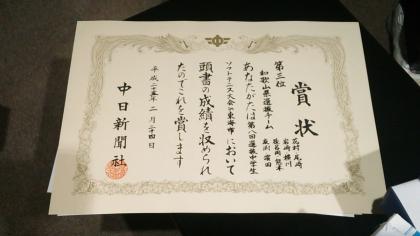 賞状
第三位
和歌山県選抜チーム
あなたがたは第八回選抜中学生
ソフトテニス大会in東海市において
頭書の成績を収められ
たのでこれを賞します
平成二十五年二月二十四日
中日新聞社